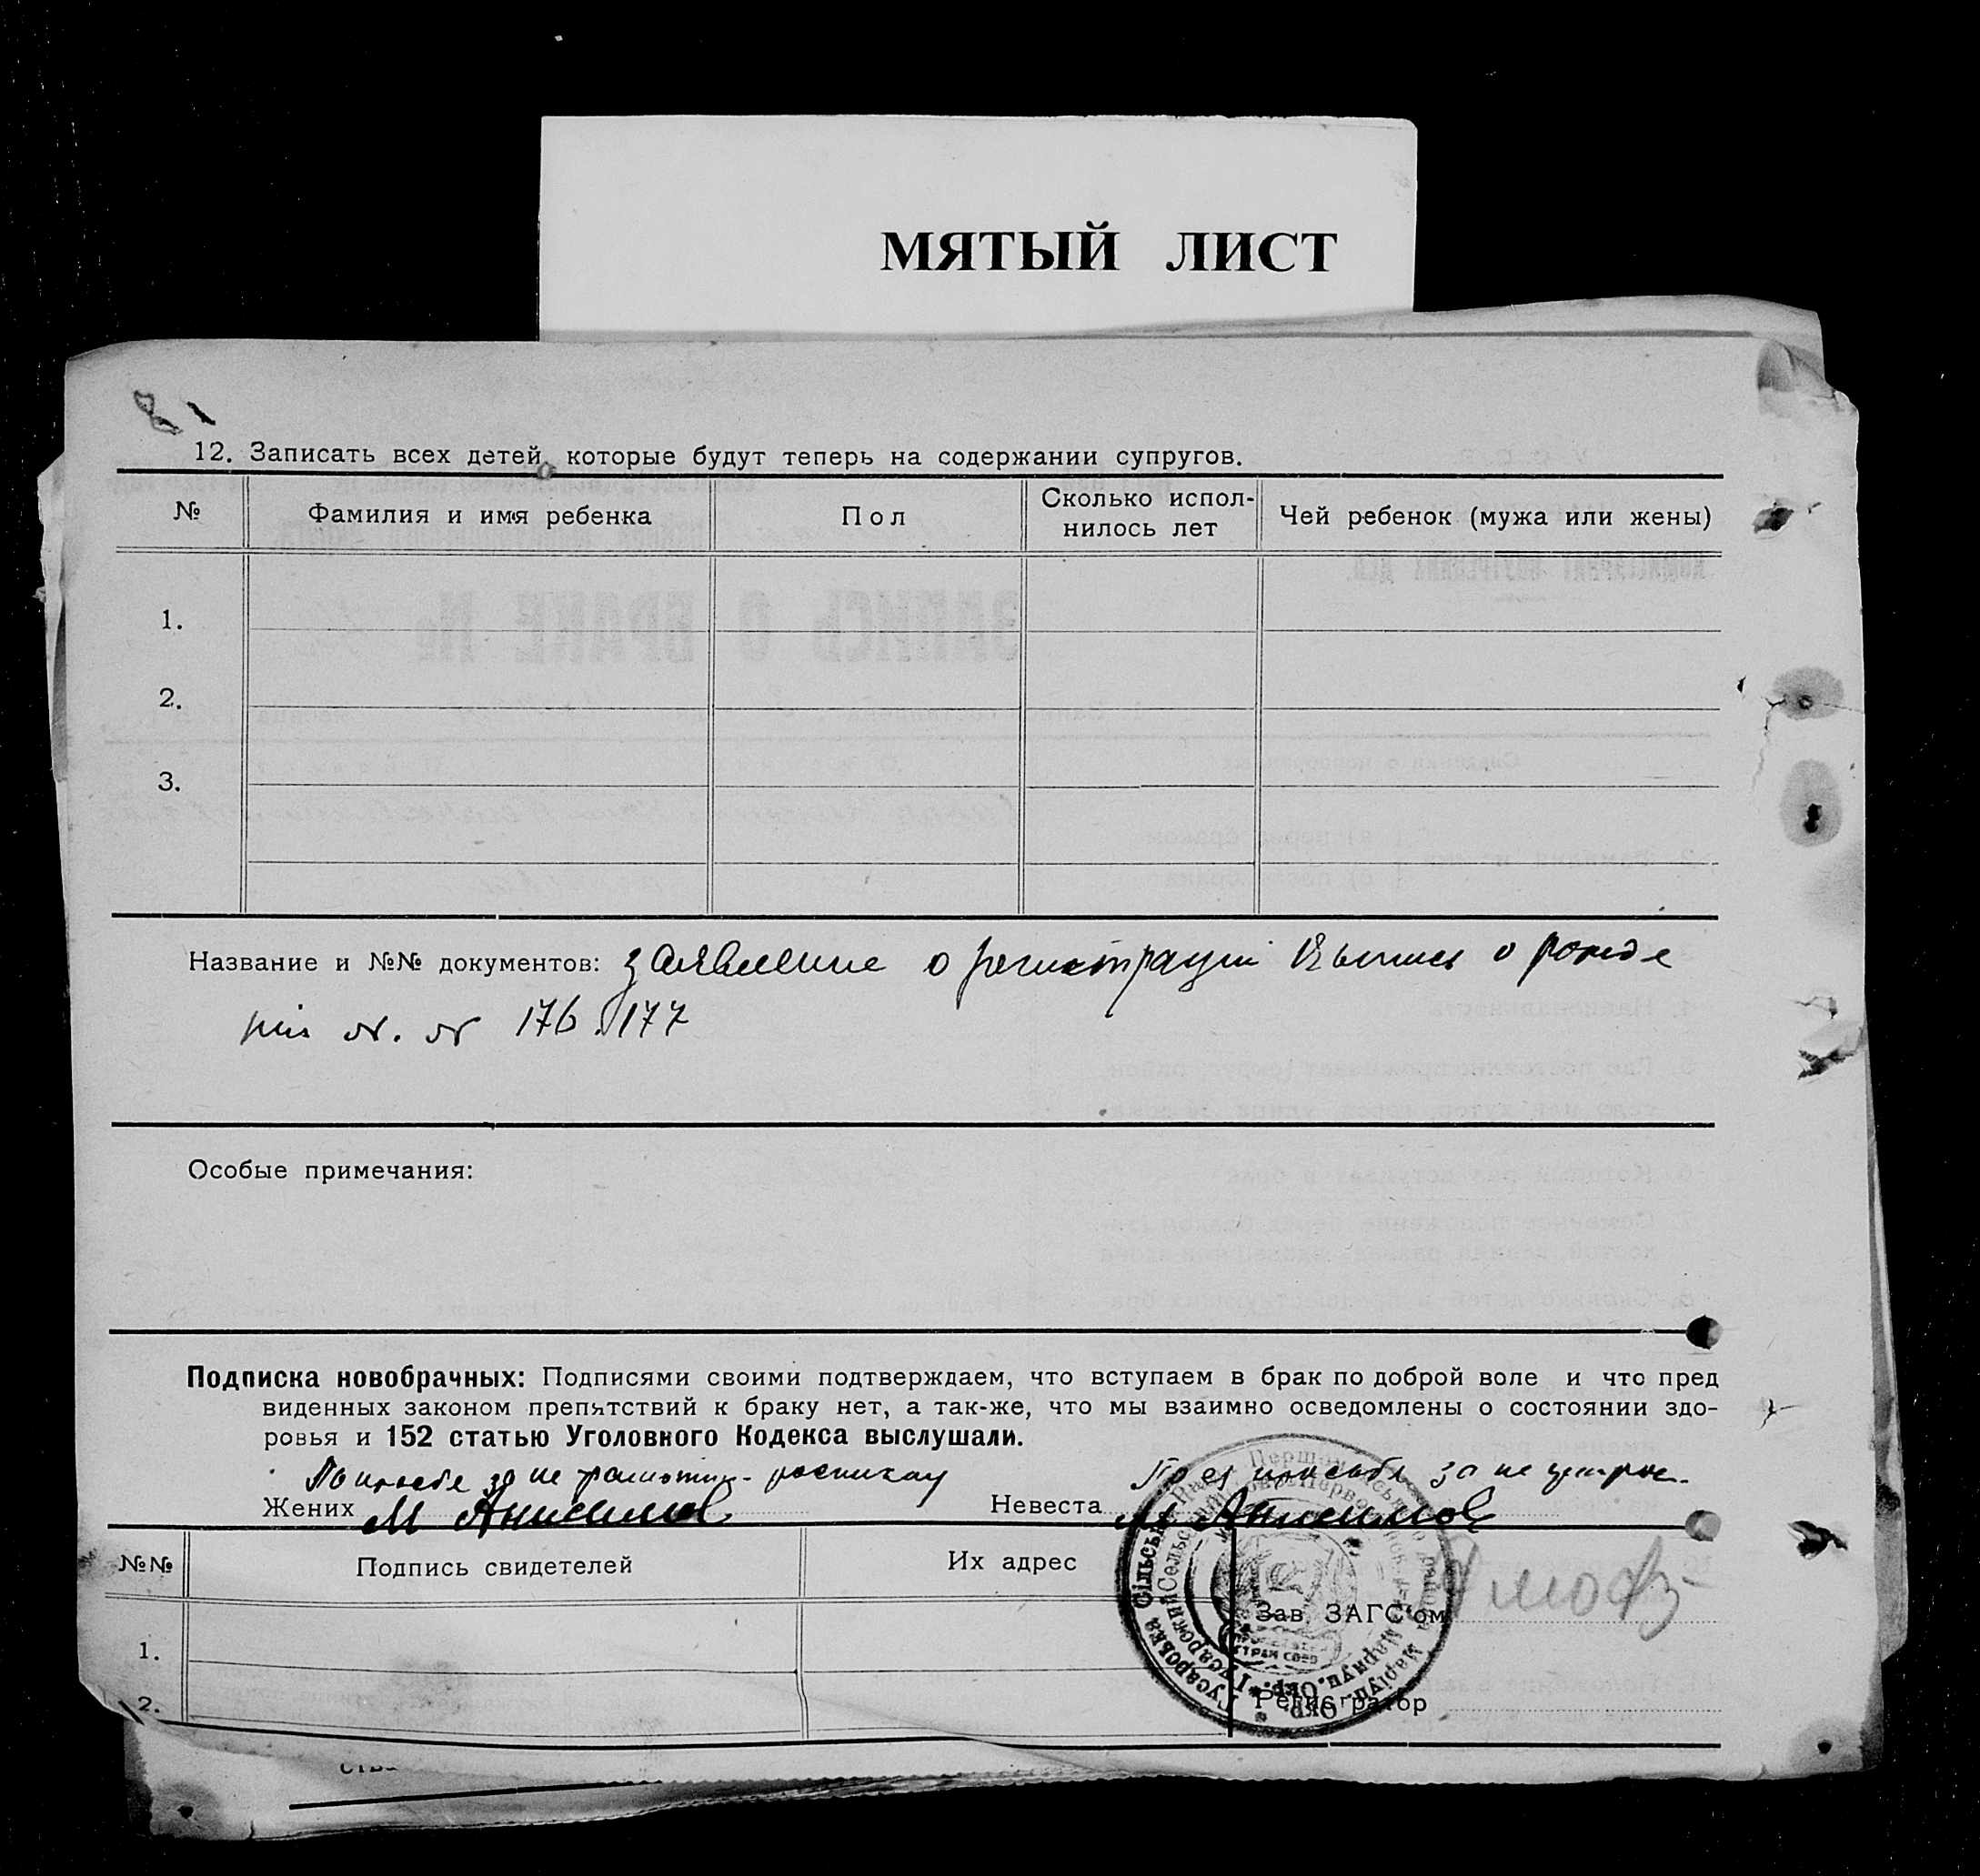 МЯТЫЙ ЛИСТ
12. Записать всех детей, которые будут теперь на содержании супругов.
№ Фамилия и имя ребенка Пол Сколько испол-нилось лет Чей ребенок (мужа или жены)
1.
2.
3.
Название и №№ документов: заявление о регистрации Выписи о рожде
нии № № 176. 177
Особые примечания:
Подписка новобрачных: Подписями своими подтверждаем, что вступаем в брак по доброй воле и что пред
виденных законом препятствий к браку нет, а так-же, что мы взаимно осведомлены о состоянии здо-
ровья и 152 статью Уголовного Кодекса выслушали.
По просьбе за не грамотн. По ея просьбе за не
Жених М Анисимов Невеста М Анисимов
№№ Подпись свидетелей Их адрес
Зав. ЗАГС'ом
1.
2.
Регистратор